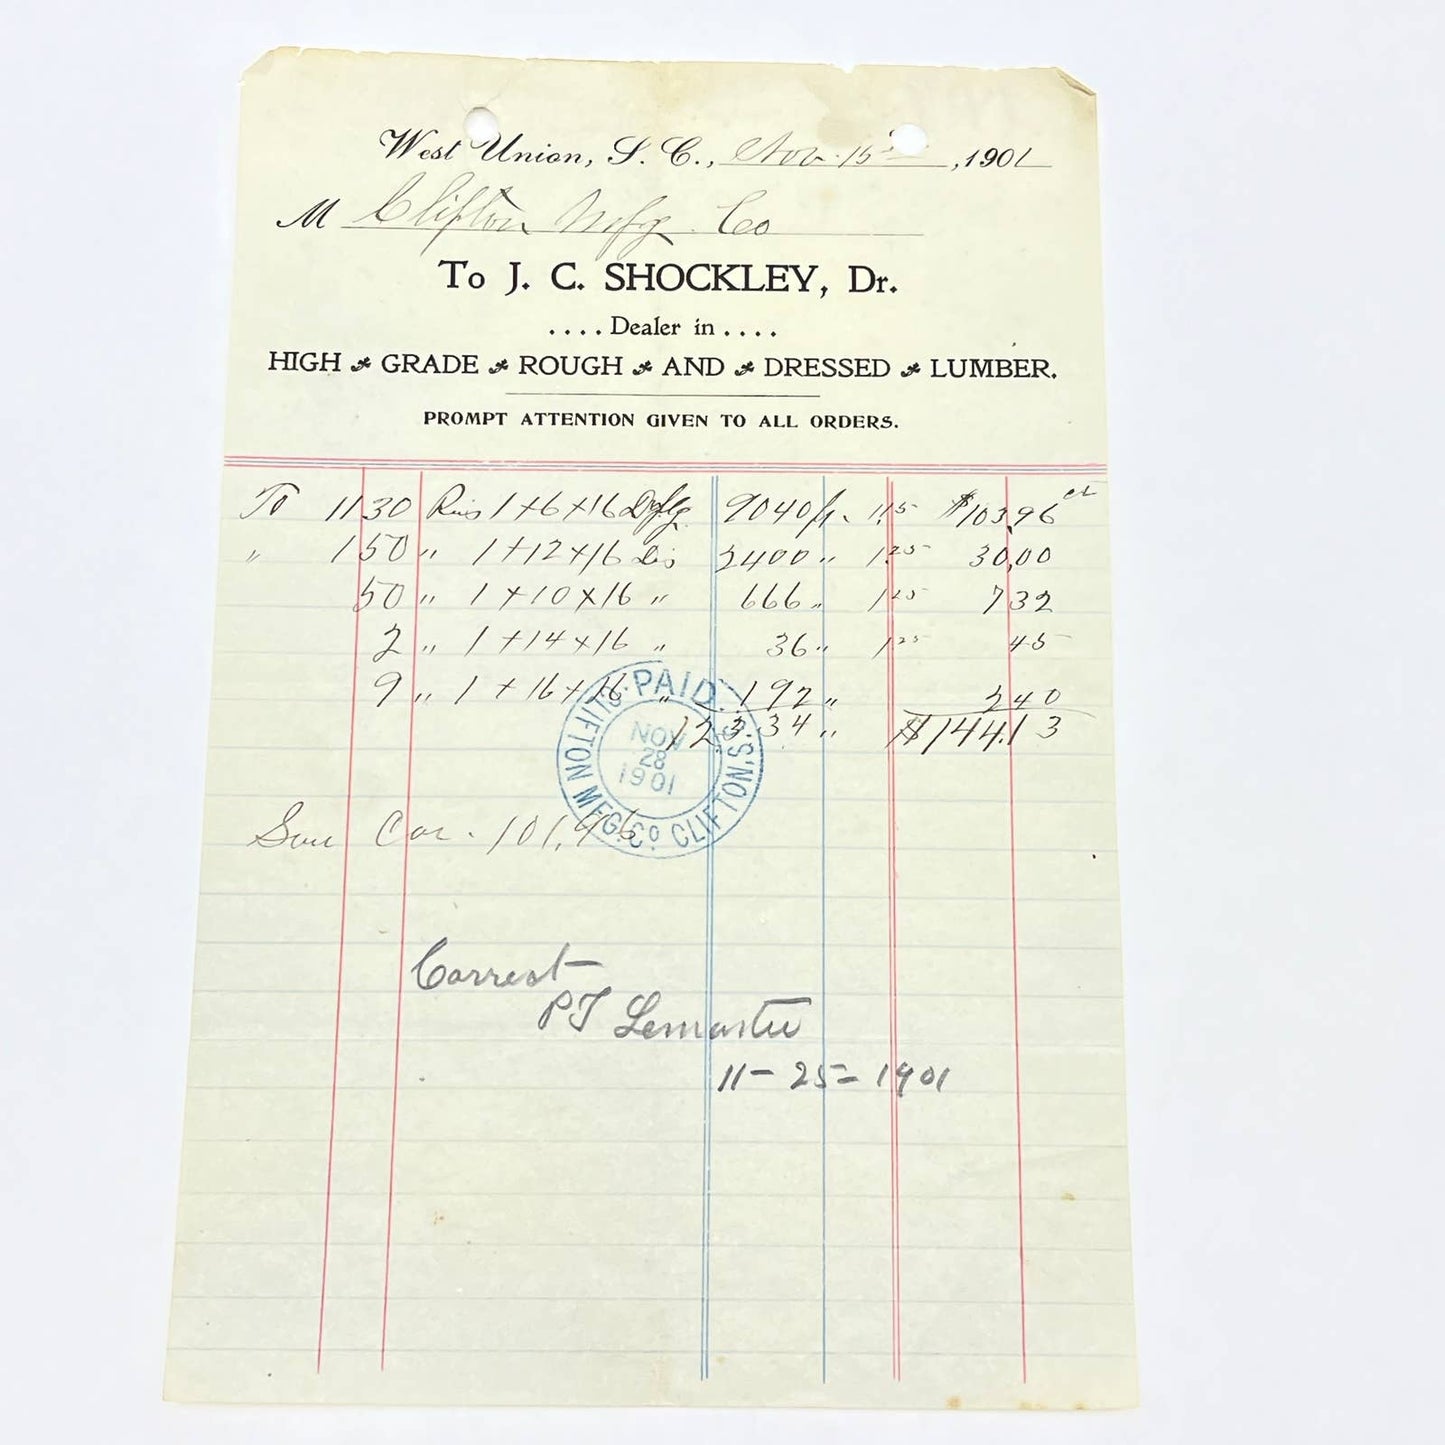 West Union, S. C., Nov. 15, 1901
M Clifton Mfg. Co
To J. C. SHOCKLEY, Dr.
.... Dealer in ....
HIGH GRADE ROUGH AND DRESSED LUMBER.
PROMPT ATTENTION GIVEN TO ALL ORDERS.
To 1130 1+6+16 9040 ft. 1.15 $103.96 ct
" 150 " 1+12+16 2400 " 1.25 30,00
50 " 1+10+16 " 666 " 1.25 7 32
2 " 1+14+16 " 36 " 1.25 45
9 " 1+16+16 " 192 " 2 40
12334 " $144.13
PAID.
CLIFTON MFG. Co. CLIFTON, S. C.
NOV
28
1901
Car. 101,
Correct
P J Lemaster
11-25-1901